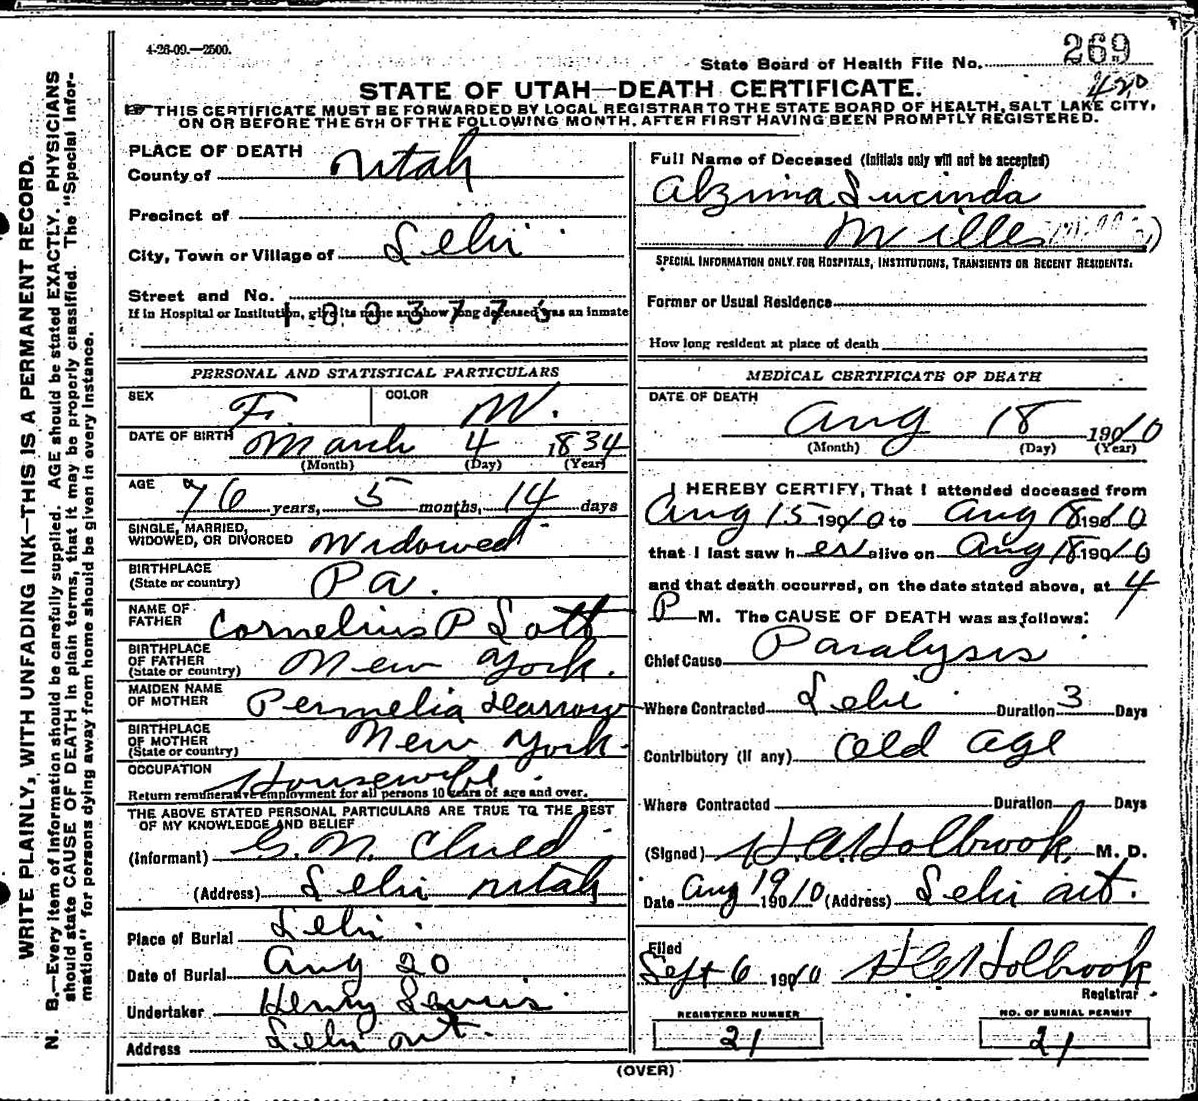 4-26-09.—2500.
State Board of Health File No. 269
420
STATE OF UTAH—DEATH CERTIFICATE.
☞ THIS CERTIFICATE MUST BE FORWARDED BY LOCAL REGISTRAR TO THE STATE BOARD OF HEALTH, SALT LAKE CITY,
ON OR BEFORE THE 5TH OF THE FOLLOWING MONTH, AFTER FIRST HAVING BEEN PROMPTLY REGISTERED.
WRITE PLAINLY, WITH UNFADING INK—THIS IS A PERMANENT RECORD.
N. B.—Every item of information should be carefully supplied. AGE should be stated EXACTLY. PHYSICIANS
should state CAUSE OF DEATH in plain terms, that it may be properly classified. The "Special Infor-
mation" for persons dying away from home should be given in every instance.
PLACE OF DEATH
County of Utah
Precinct of
City, Town or Village of Lehi
Street and No.
If in Hospital or Institution, give its name and how long deceased was an inmate
1003775
PERSONAL AND STATISTICAL PARTICULARS
SEX F. COLOR W.
DATE OF BIRTH March 4 1834
(Month) (Day) (Year)
AGE 76 years, 5 months, 14 days
SINGLE, MARRIED,
WIDOWED, OR DIVORCED Widowed
BIRTHPLACE
(State or country) Pa.
NAME OF
FATHER Cornelius P Lott
BIRTHPLACE
OF FATHER
(State or country) New York.
MAIDEN NAME
OF MOTHER Permelia Darrow
BIRTHPLACE
OF MOTHER
(State or country) New York.
OCCUPATION Housewife.
Return remunerative employment for all persons 10 years of age and over.
THE ABOVE STATED PERSONAL PARTICULARS ARE TRUE TO THE BEST
OF MY KNOWLEDGE AND BELIEF
(Informant) G. N. Child
(Address) Lehi Utah
Place of Burial Lehi.
Date of Burial Aug 20
Undertaker Henry Lewis
Address Lehi Ut.
Full Name of Deceased (Initials only will not be accepted)
Alzina Lucinda
Willes
SPECIAL INFORMATION ONLY FOR HOSPITALS, INSTITUTIONS, TRANSIENTS OR RECENT RESIDENTS.
Former or Usual Residence
How long resident at place of death
MEDICAL CERTIFICATE OF DEATH
DATE OF DEATH
Aug 18 1910
(Month) (Day) (Year)
I HEREBY CERTIFY, That I attended deceased from
Aug 15 1910 to Aug 18 1910
that I last saw her alive on Aug 18 1910
and that death occurred, on the date stated above, at 4
P M. The CAUSE OF DEATH was as follows:
Chief Cause Paralysis
Where Contracted Lehi Duration 3 Days
Contributory (if any) Old age
Where Contracted Duration Days
(Signed) H. A. Holbrook, M. D.
Date Aug 19 1910 (Address) Lehi Ut.
Filed
Sept 6 1910 H A Holbrook
Registrar
REGISTERED NUMBER
21
NO. OF BURIAL PERMIT
21
(OVER)